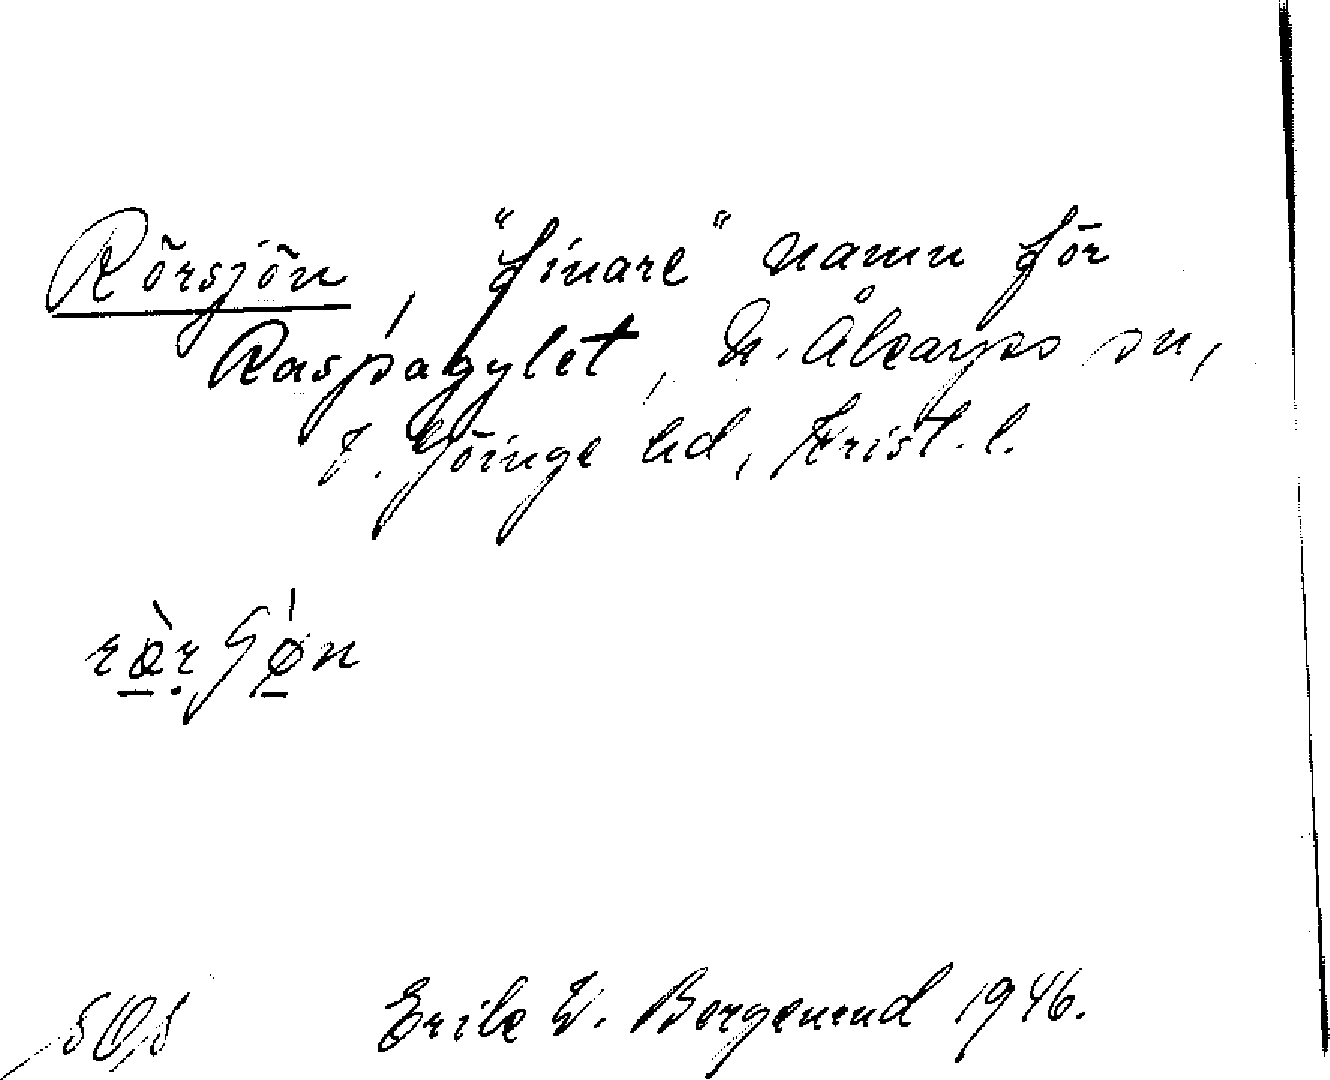 Rörsjön, "finare" namn för
Raspagylet, N. Åkarps sn,
V. Göinge hd, Krist. l.
Erik W. Borgemud 1946.